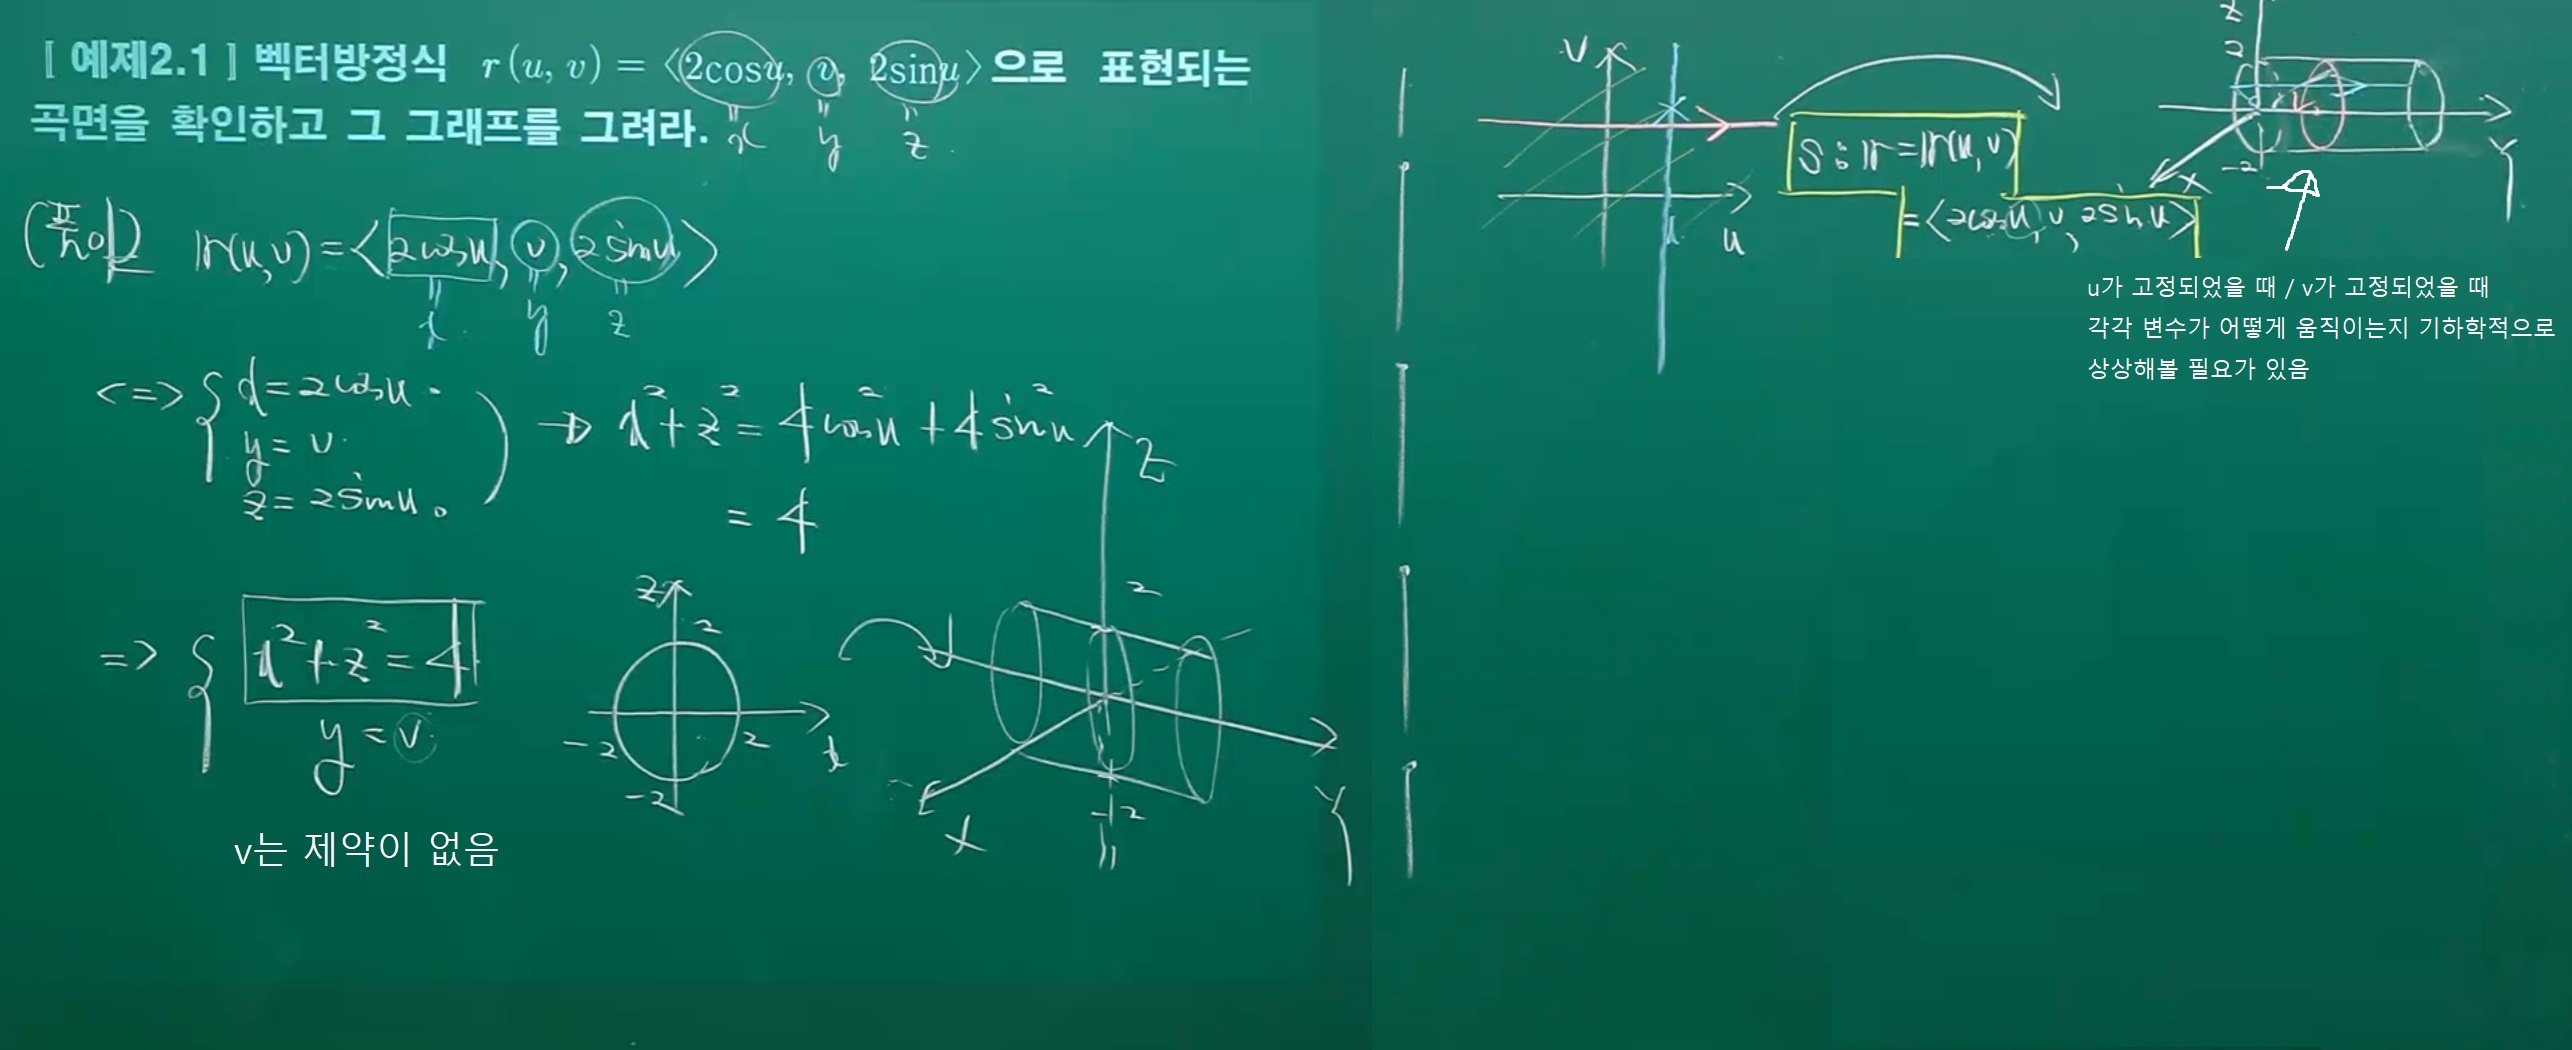 [ 예제2.1 ] 벡터방정식 r(u, v) = ⟨2cosu, v, 2sinu⟩으로 표현되는
곡면을 확인하고 그 그래프를 그려라.
= x = y = z
(풀이) r(u,v) = <2cosu, v, 2sinu>
= x = y = z
<=> { x = 2cosu.
y = v.
z = 2sinu.
→ x² + z² = 4cos²u + 4sin²u
= 4
=> { x² + z² = 4
y = v
v는 제약이 없음
z
2
-2 2 x
-2
z
2
-2
x
y
v
u
u
S : r = r(u,v)
= <2cosu, v, 2sinu>
z
2
-2
x
y
u가 고정되었을 때 / v가 고정되었을 때
각각 변수가 어떻게 움직이는지 기하학적으로
상상해볼 필요가 있음